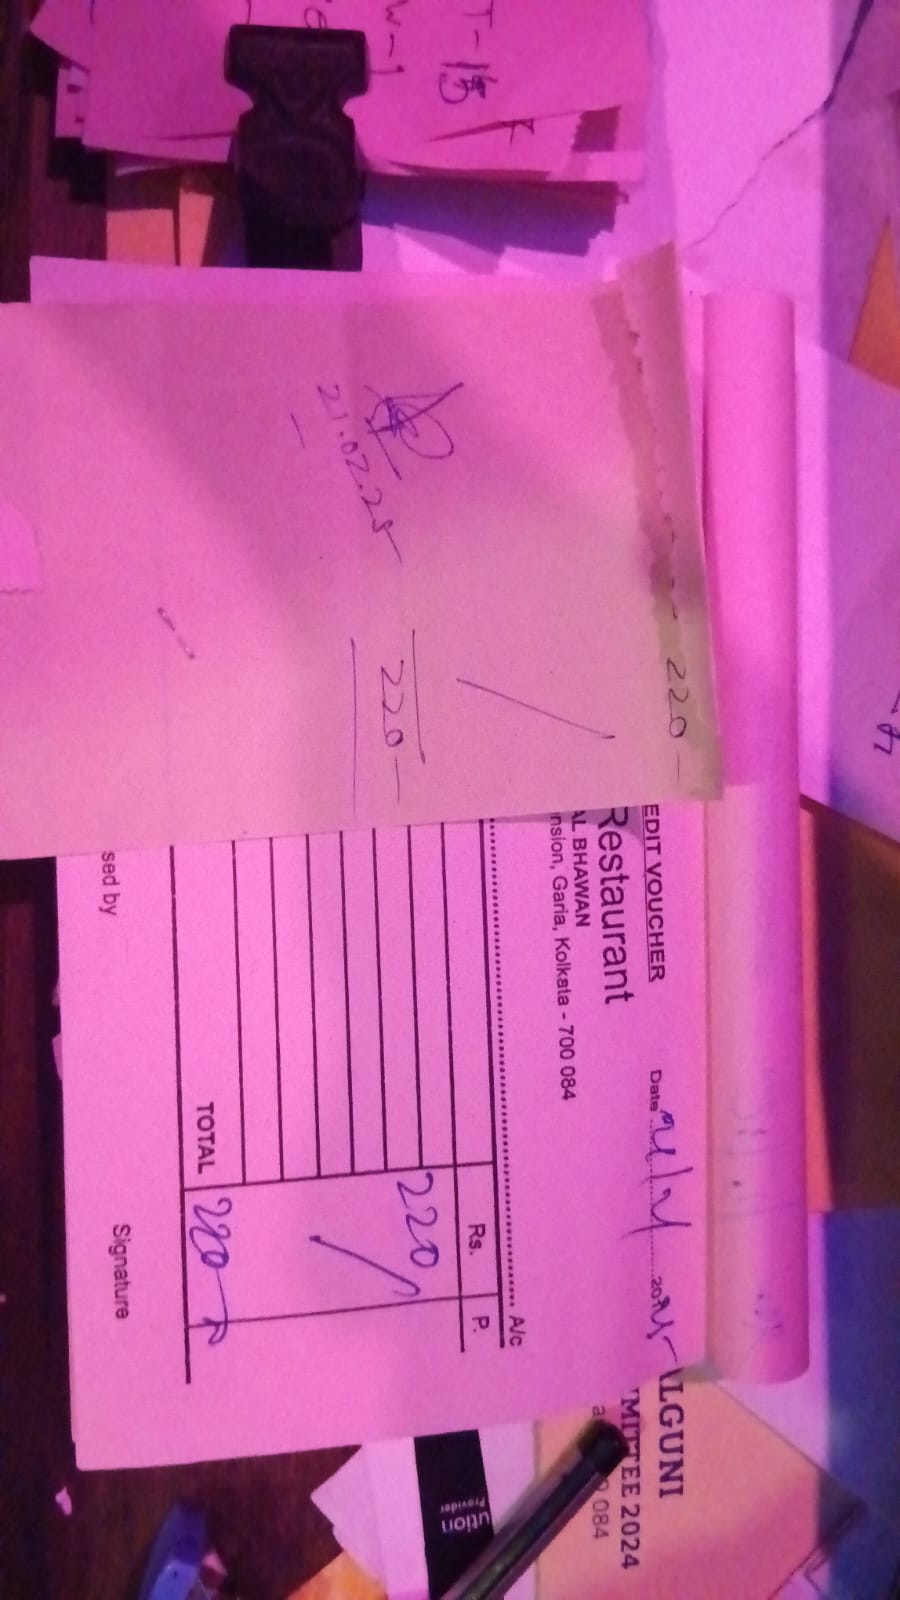 T-15
220 -
220 -
21.02.25
EDIT VOUCHER
Date
20
Restaurant
AL BHAWAN
nsion, Garia, Kolkata - 700 084
A/c
Rs. P.
220/
TOTAL 220
sed by
Signature
ALGUNI
MITTEE 2024
084
ution
Provider